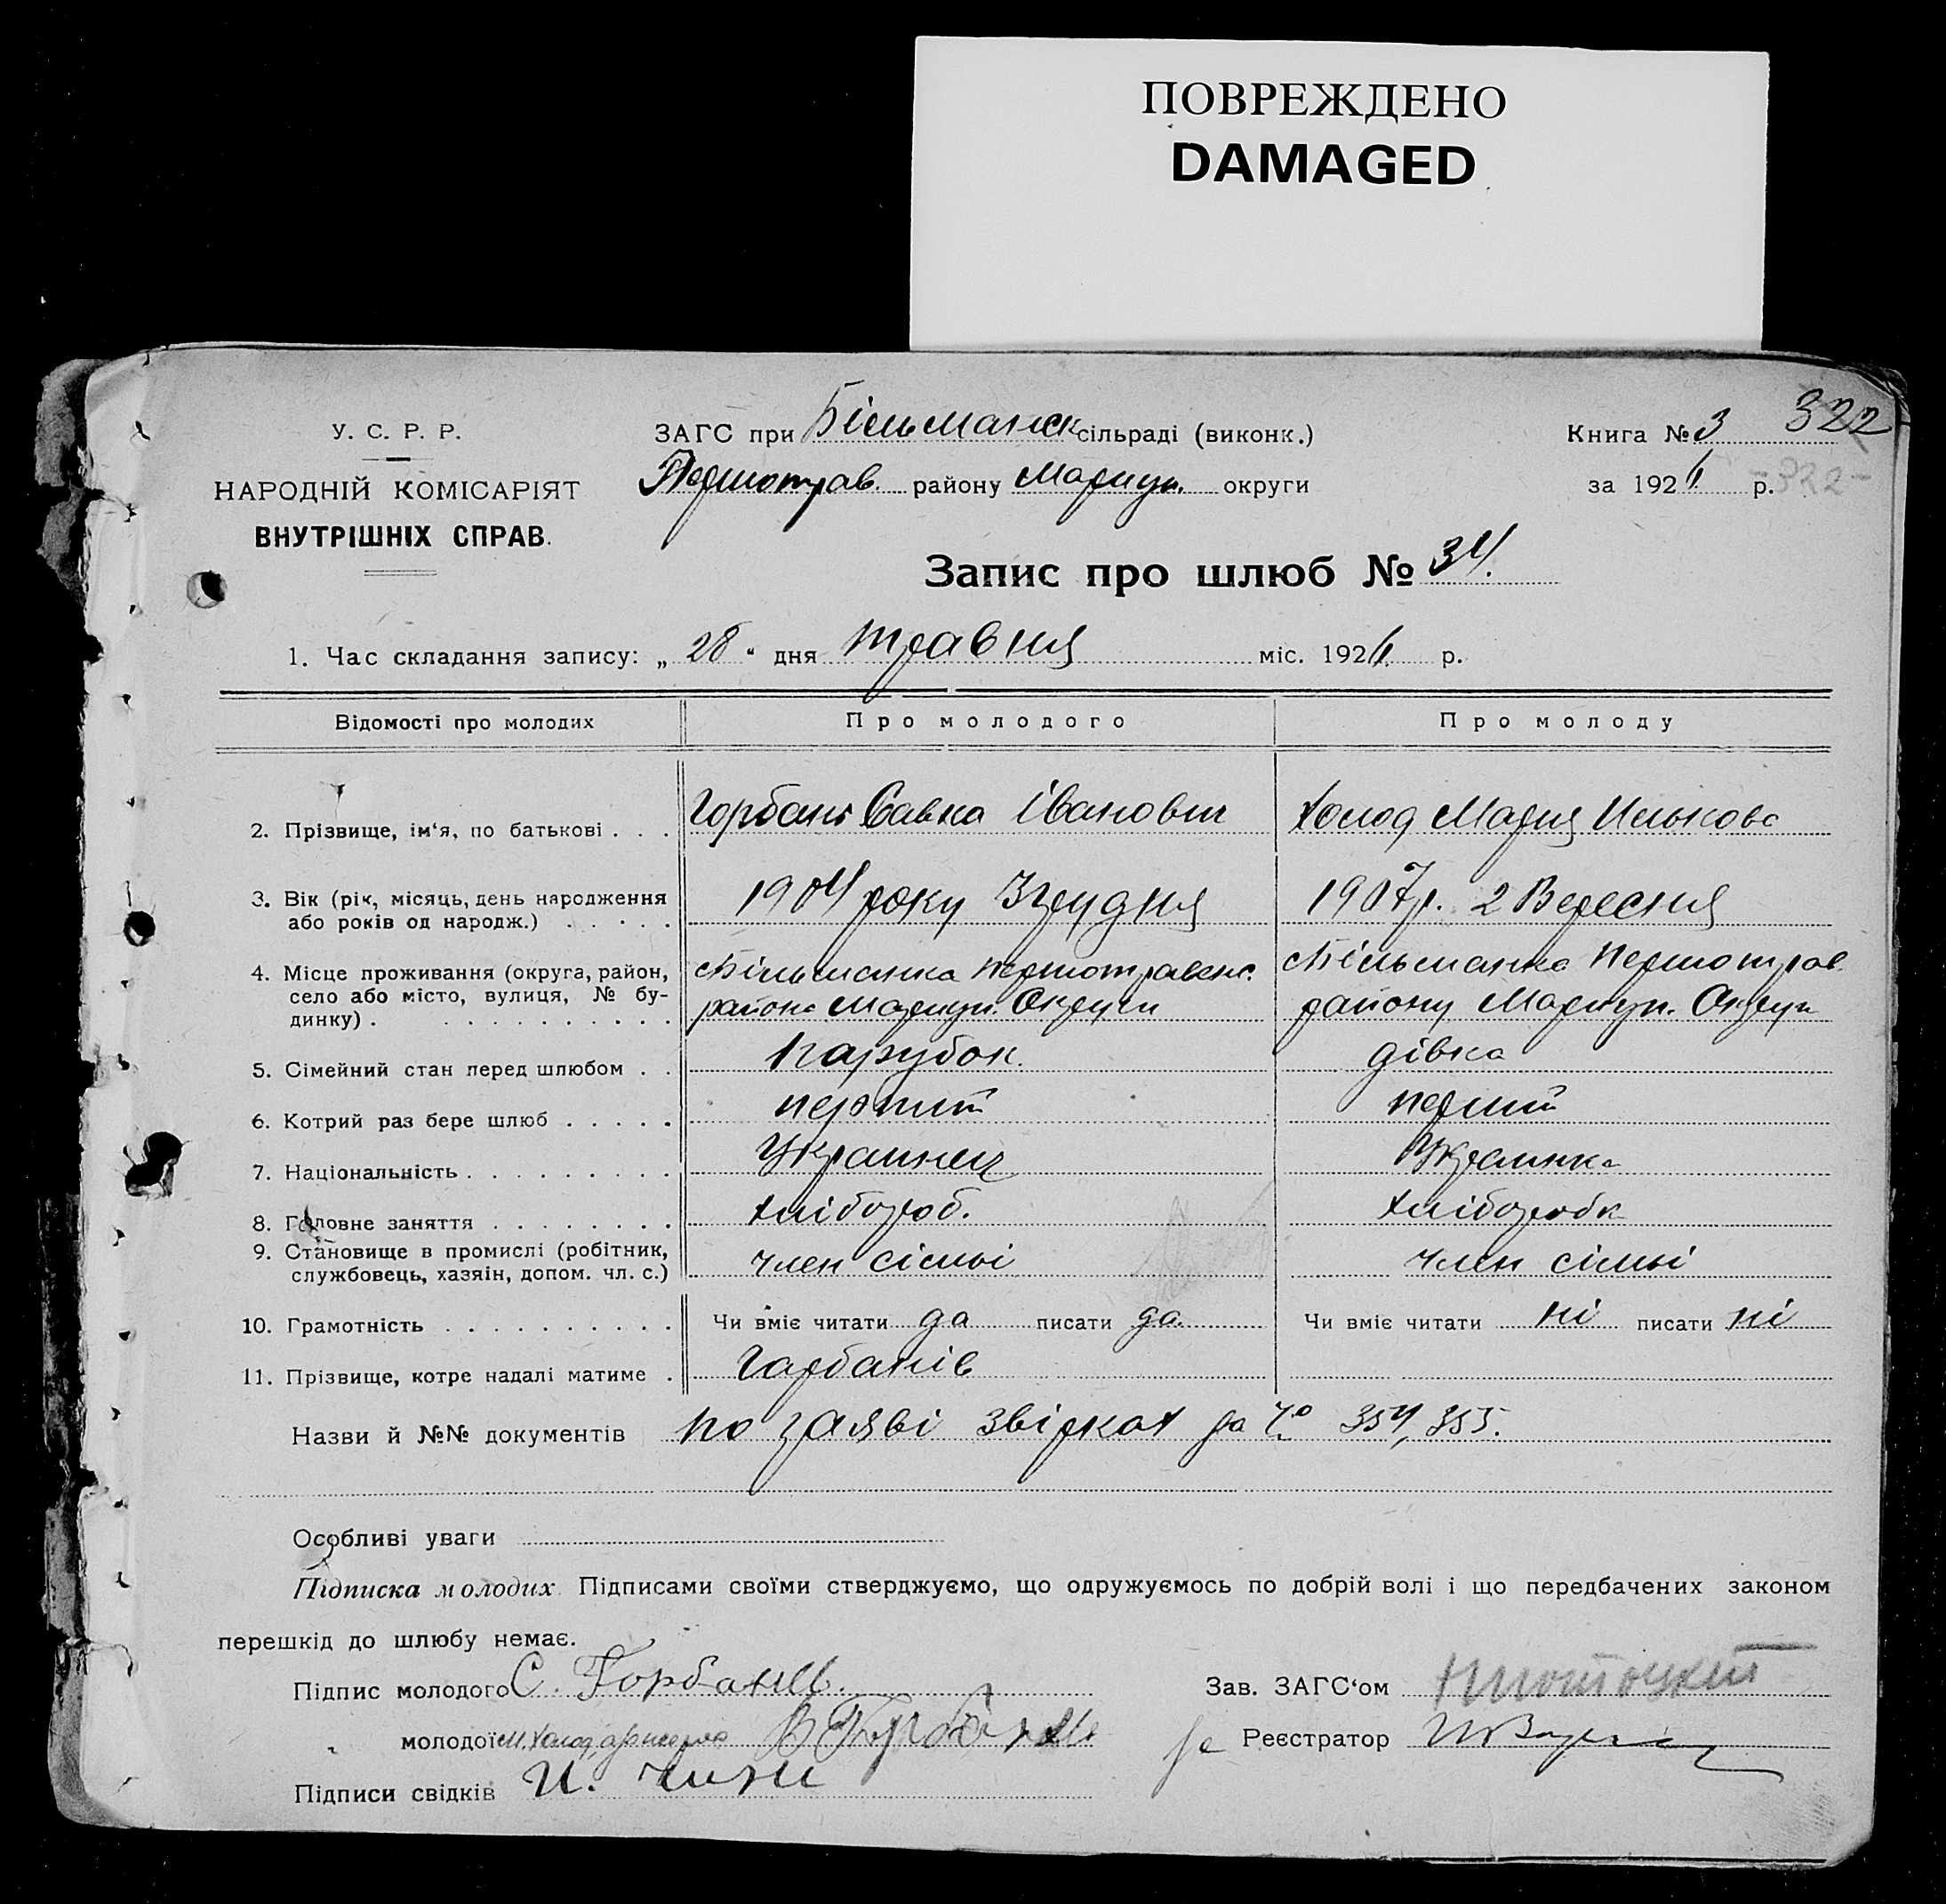 ПОВРЕЖДЕНО
DAMAGED
У. С. Р. Р.
НАРОДНІЙ КОМІСАРІЯТ
ВНУТРІШНІХ СПРАВ.
ЗАГС при Більманск сільраді (виконк.)
Першотрав. району Мариуп. округи
Книга № 3
322
за 192 р. 322
Запис про шлюб № 34.
1. Час складання запису: „ 28 “ дня травня міс. 192 р.
Відомості про молодих Про молодого Про молоду
2. Прізвище, ім'я, по батькові . . . Горбань Савка Іванович Холод Мария Илькова
3. Вік (рік, місяць, день народження
або років од народж.) . . . . . 1904 року 3 грудня 1907 р. 2 Вересня
4. Місце проживання (округа, район, Більманка Першотравенс. Більманка Першотрав.
село або місто, вулиця, № бу- района Мариуп. Округи району Мариуп. Округи
динку) . . . . . . . . . . . .
5. Сімейний стан перед шлюбом . . Парубок. дівка
6. Котрий раз бере шлюб . . . . . перший перший
7. Національність . . . . . . . . . Украинец Украинка
8. Головне заняття . . . . . . . . хлібороб. хліборобк
9. Становище в промислі (робітник,
службовець, хазяїн, допом. чл. с.) член сімьі член сімьі
10. Грамотність . . . . . . . . . . Чи вміє читати да писати да. Чи вміє читати ні писати ні
11. Прізвище, котре надалі матиме . Гарбанів
Назви й №№ документів по заяві звірках за № 354, 355.
Особливі уваги
Підписка молодих. Підписами своїми стверджуємо, що одружуємось по добрій волі і що передбачених законом
перешкід до шлюбу немає.
Підпис молодого С. Горбань Зав. ЗАГС'ом
„ молодої М. Холод Реєстратор
Підписи свідків И.